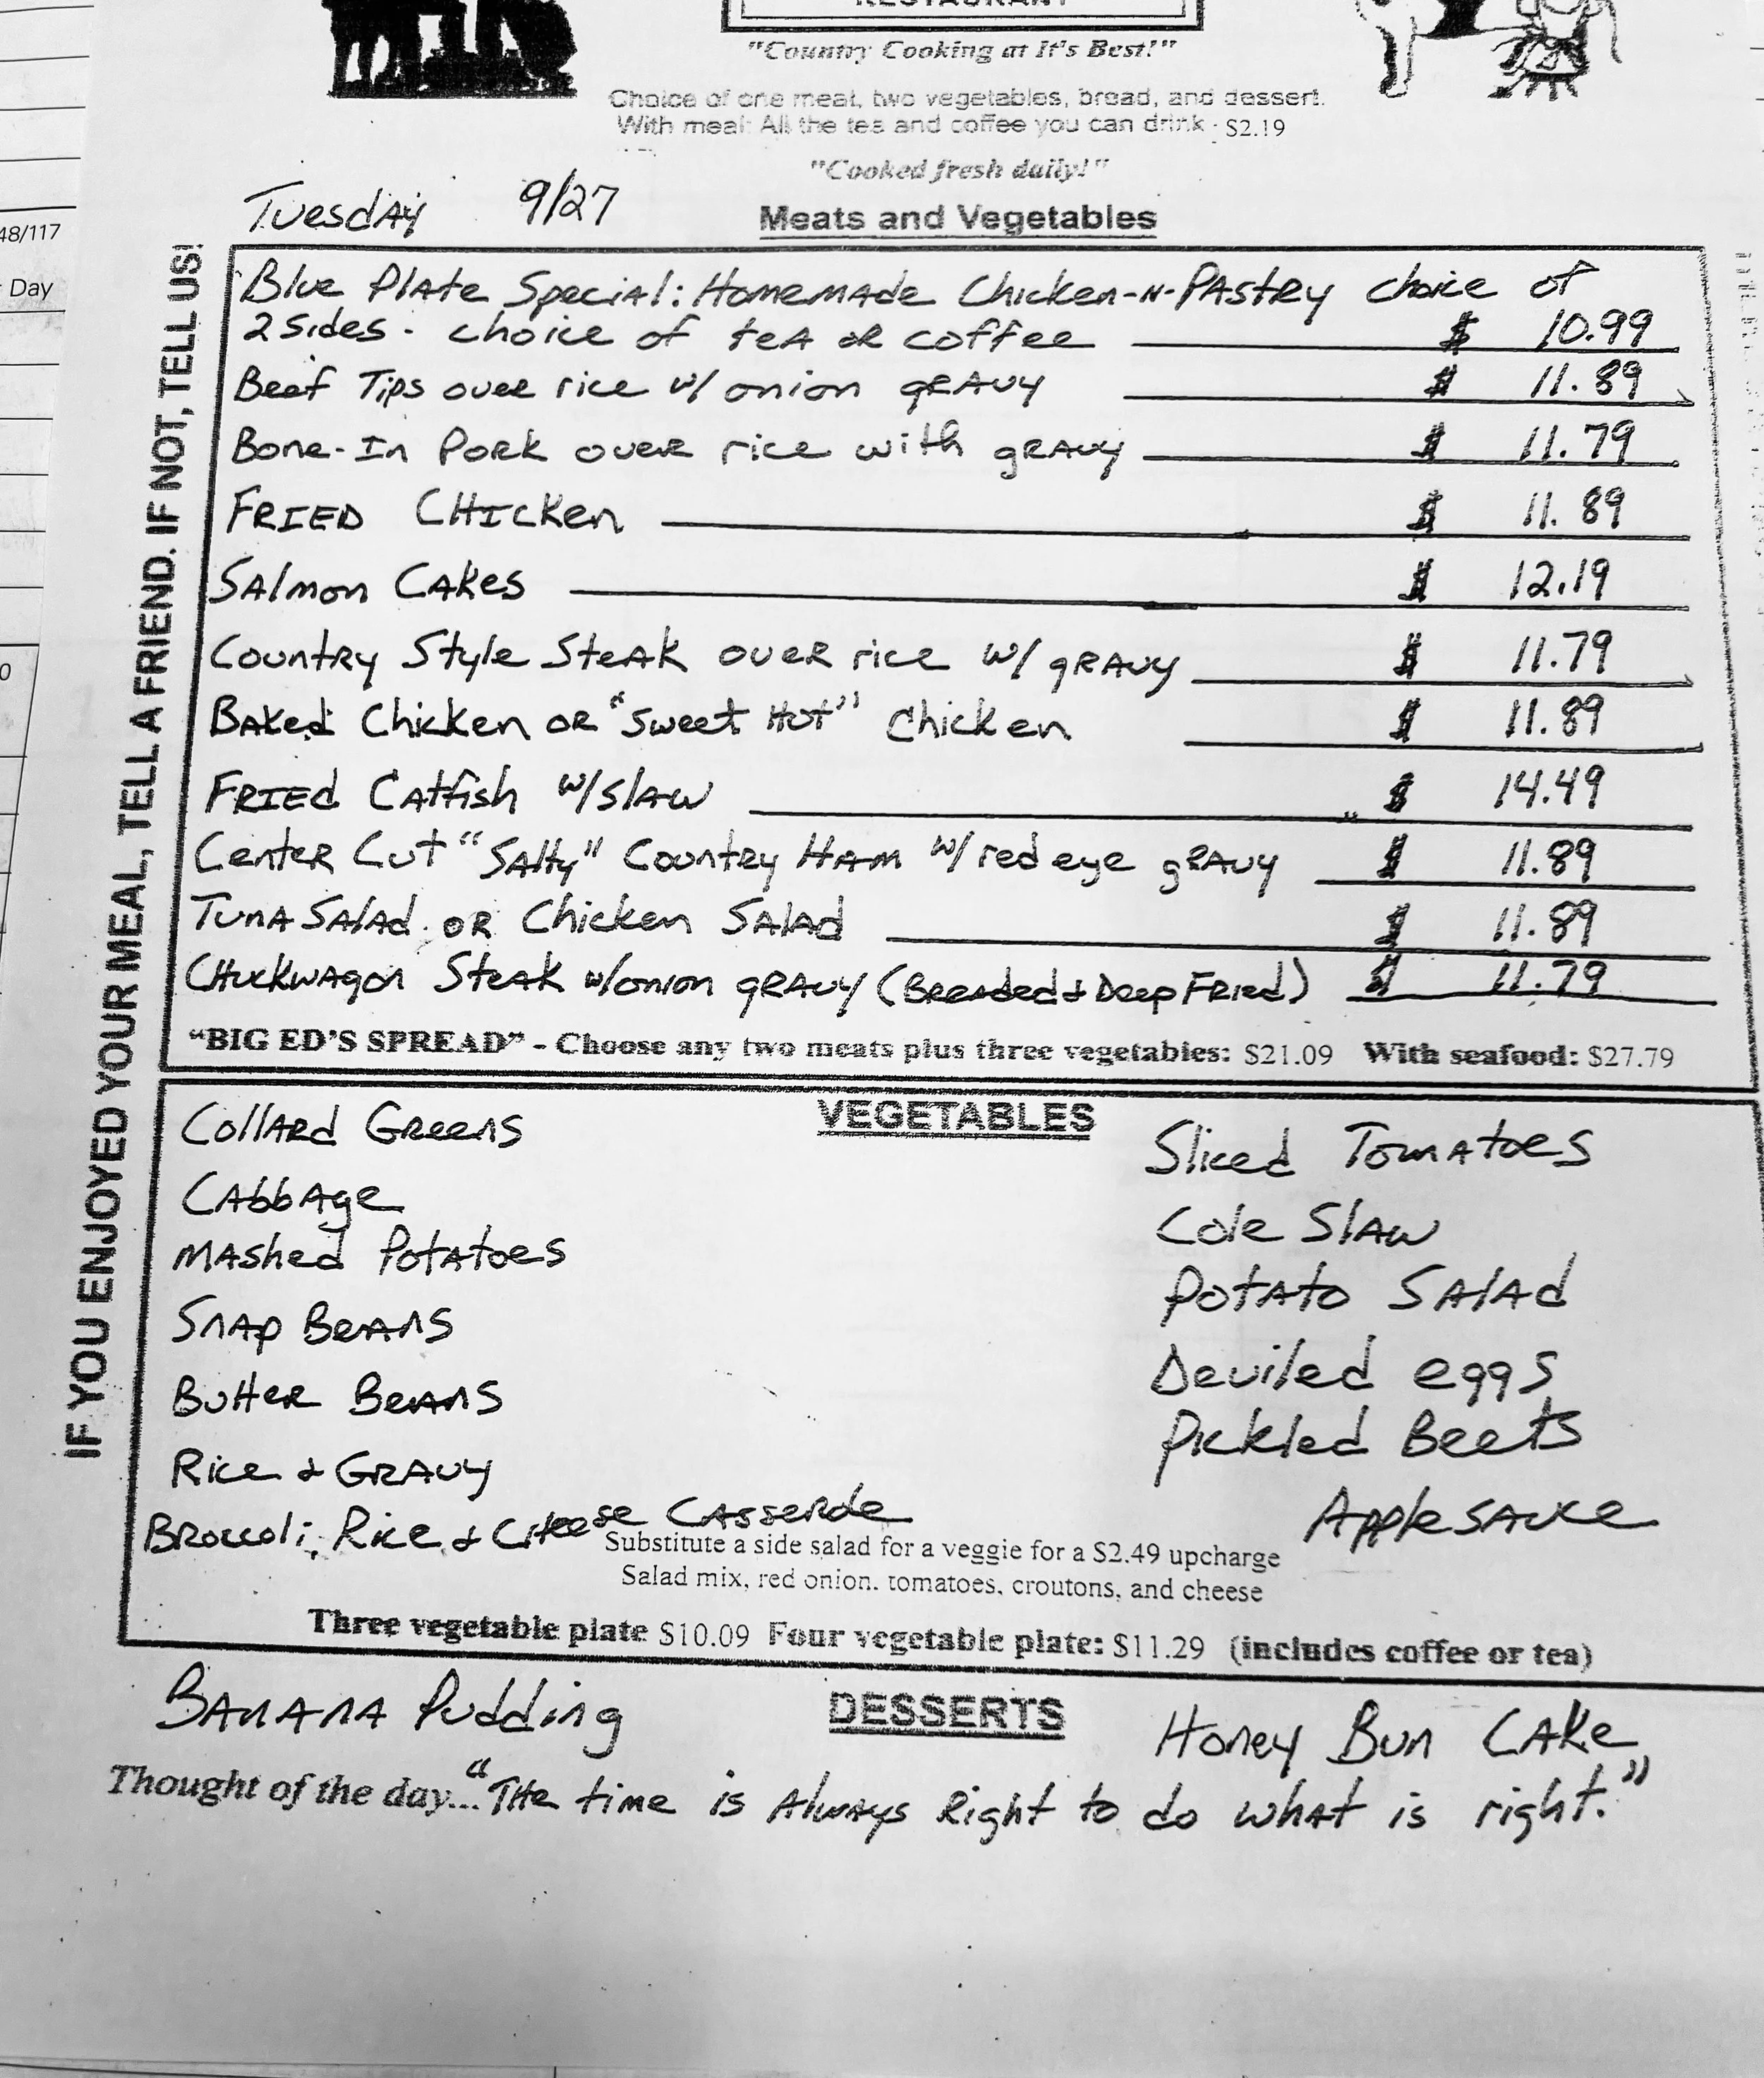 RESTAURANT
"Country Cooking at It's Best!"
Choice of one meat, two vegetables, bread, and dessert.
With meal: All the tea and coffee you can drink - $2.19
"Cooked fresh daily!"
Tuesday 9/27
Meats and Vegetables
48/117
Day
0
IF YOU ENJOYED YOUR MEAL, TELL A FRIEND. IF NOT, TELL US!
Blue Plate Special: Homemade Chicken-N-Pastry choice of
2 sides - choice of tea or coffee $ 10.99
Beef Tips over rice w/ onion gravy $ 11.89
Bone-In Pork over rice with gravy $ 11.79
FRIED CHICKEN $ 11.89
Salmon Cakes $ 12.19
Country Style Steak over rice w/ gravy $ 11.79
Baked Chicken or "Sweet Hot" Chicken $ 11.89
FRIED Catfish w/slaw $ 14.49
Center Cut "Salty" Country Ham w/ red eye gravy $ 11.89
Tuna Salad or Chicken Salad $ 11.89
Chuckwagon Steak w/onion gravy (Breaded & Deep Fried) $ 11.79
"BIG ED'S SPREAD" - Choose any two meats plus three vegetables: $21.09 With seafood: $27.79
VEGETABLES
Collard Greens
Cabbage
Mashed Potatoes
Snap Beans
Butter Beans
Rice & Gravy
Broccoli, Rice & Cheese Casserole
Sliced Tomatoes
Cole Slaw
Potato Salad
Deviled eggs
Pickled Beets
Applesauce
Substitute a side salad for a veggie for a $2.49 upcharge
Salad mix, red onion, tomatoes, croutons, and cheese
Three vegetable plate $10.09 Four vegetable plate: $11.29 (includes coffee or tea)
DESSERTS
Banana Pudding
Honey Bun Cake
Thought of the day..."The time is always right to do what is right."